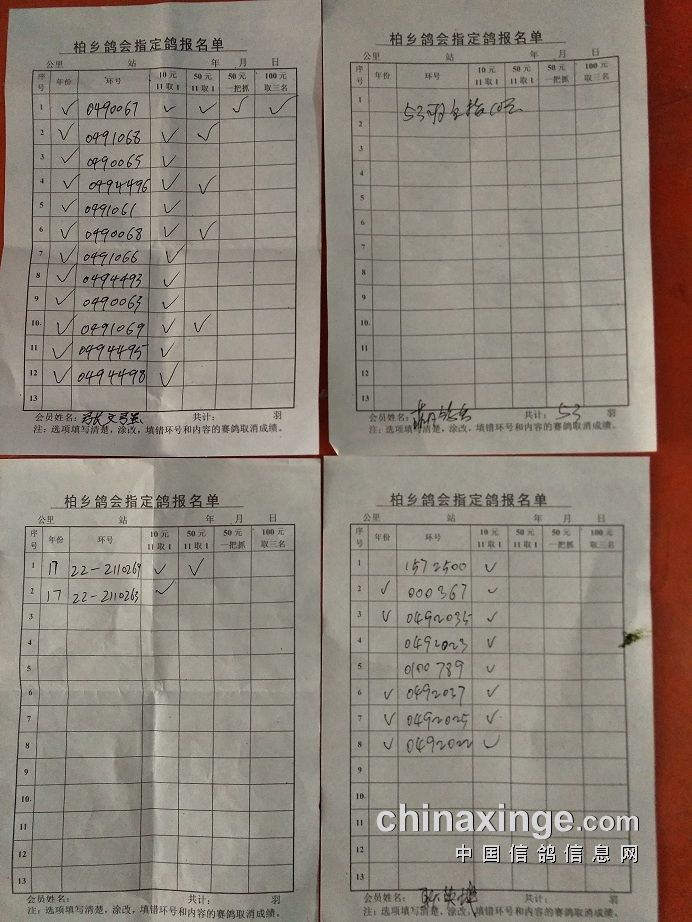 柏乡鸽会指定鸽报名单
公里 站 年 月 日
序号 年份 环号 10元 11取1 50元 11取1 50元 一把抓 100元 取三名
1 ✓ 0490067 ✓ ✓ ✓ ✓
2 ✓ 0491068 ✓ ✓
3 ✓ 0490065 ✓
4 ✓ 0494496 ✓ ✓
5 ✓ 0491061 ✓
6 ✓ 0490068 ✓ ✓
7 ✓ 0491066 ✓
8 ✓ 0494493 ✓
9 ✓ 0490063 ✓
10 ✓ 0491069 ✓ ✓
11 ✓ 0494495 ✓
12 ✓ 0494498 ✓
会员姓名: 共计: 羽
注:选项填写清楚,涂改,填错环号和内容的赛鸽取消成绩。
柏乡鸽会指定鸽报名单
公里 站 年 月 日
序号 年份 环号 10元 11取1 50元 11取1 50元 一把抓 100元 取三名
1 53羽全指10元
2
3
4
5
6
7
8
9
10
11
12
13
会员姓名: 共计: 53 羽
注:选项填写清楚,涂改,填错环号和内容的赛鸽取消成绩。
柏乡鸽会指定鸽报名单
公里 站 年 月 日
序号 年份 环号 10元 11取1 50元 11取1 50元 一把抓 100元 取三名
1 17 22-2110269 ✓ ✓
2 17 22-2110263 ✓
3
4
5
6
7
8
9
10
11
12
13
会员姓名: 共计: 羽
注:选项填写清楚,涂改,填错环号和内容的赛鸽取消成绩。
柏乡鸽会指定鸽报名单
公里 站 年 月 日
序号 年份 环号 10元 11取1 50元 11取1 50元 一把抓 100元 取三名
1 1572500 ✓
2 ✓ 000367 ✓
3 ✓ 0492035 ✓
4 0492023 ✓
5 0100789 ✓
6 ✓ 0492037 ✓
7 ✓ 0492025 ✓
8 ✓ 0492022 ✓
9
10
11
12
13
会员姓名: 共计: 羽
注:选项填写清楚,涂改,填错环号和内容的赛鸽取消成绩。
chinaxinge.com
中国信鸽信息网